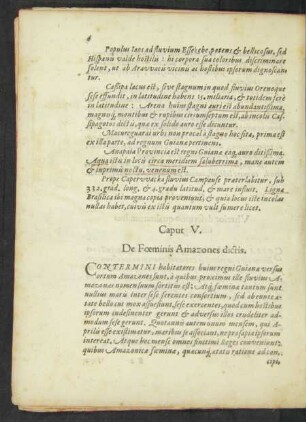 4
Populus Iaos ad fluvium Essekebe potens & bellicosus, sed
Hispani valde hostilis: hi corpora sua coloribus discriminare
solent, ut ab Arawacis vicinis ac hostibus ipsorum dignoscan-
tur.
Cassipa lacus est, sive stagnum in quod fluvius Orenoque
sese effundit, in latitudine habens 15. milliaria, & totidem ferè
in latitudine: Arena huius stagni auri est abundantissima,
magnis, montibus & rupibus circumseptum est, ab incolis Cas-
sipagotos dicta, qua ex solido auro esse dicuntur.
Macureguarai urbs non procul à stagno hoc sita, prima est
ex illa parte, ad regnum Guiana pertinens.
Anapaia Provincia est regni Guiana aqua, auro ditissima.
Aqua istius in loco circa meridiem saluberrima, mane autem
& inprimis noctu, venenum est.
Prope Caperwacka fluvium Campouse praterlabitur, sub
332. grad. long. & 4. gradu latitud. & mare influit. Ligna
Brasilica ibi magna copia proveniunt, & quia locus iste incolas
nullas habet, cuivis ex illis quantum vult sumere licet.
Caput V.
De Fœminis Amazones dictis.
CONTERMINI habitatores huius regni Guiana versus
ortum Amazones sunt, à quibus proximus ille fluvius A-
mazonas nomen suum sortitus est: Atq, fœmina tantum sunt
nullum maris inter sese ferentes consortium, sed abrunt a-
state bello ac mox assuescunt, idque exercent, cum hostibus
ipsorum indesinenter gerunt & adversus illos crudeliter ad-
modum sese gerunt. Quotannis autem unum mensem, qui A-
prilis esse existimatur, maribus se associant, no propagis ipsorum
intereat. Atque hoc mense omnes finitimi Reges conveniunt
quibus Amazonica fœmina, quacunq, atatis ratione ad con-
cipi-